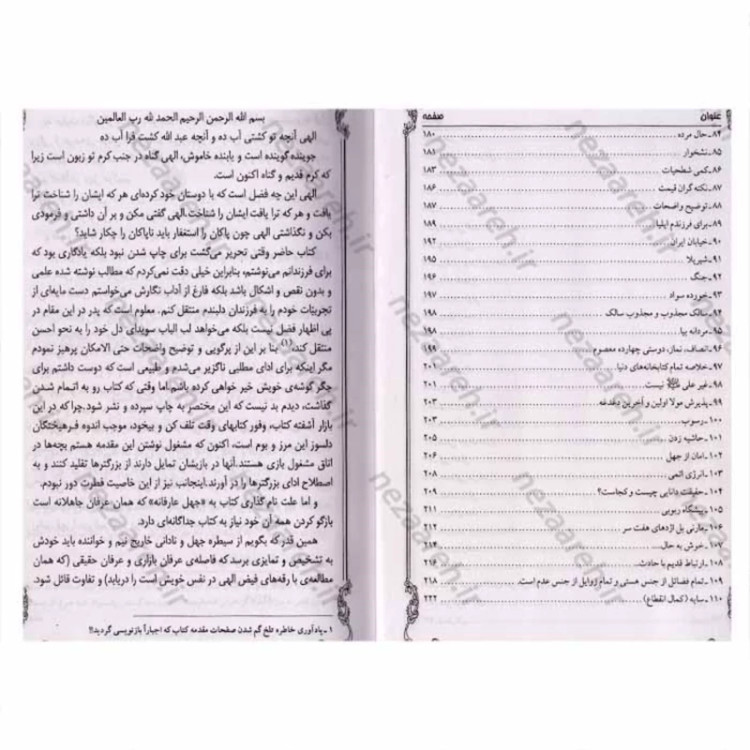 عنوان صفحه
۸۴ـ حال مرده ۱۸۰
۸۵ـ نشخوار ۱۸۱
۸۶ـ کمی شطحیات ۱۸۳
۸۷ـ نکته گران قیمت ۱۸۶
۸۸ـ توضیح واضحات ۱۸۷
۸۹ـ برای فرزندم ایلیا ۱۸۹
۹۰ـ خیابان ایران ۱۹۲
۹۱ـ شیربلا ۱۹۵
۹۲ـ جنگ ۱۹۶
۹۳ـ خورده سواد ۱۹۷
۹۴ـ سالک مجذوب و مجذوب سالک ۱۹۸
۹۵ـ مردانه بیا ۱۹۸
۹۶ـ انصاف، نماز، دوستی چهارده معصوم ۱۹۹
۹۷ـ خلاصه تمام کتابخانه‌های دنیا ۲۰۱
۹۸ـ غیر علی نیست ۲۰۱
۹۹ـ پذیرش مولا اولین و آخرین دغدغه ۲۰۳
۱۰۰ـ رسوب ۲۰۳
۱۰۱ـ حاشیه زدن ۲۰۵
۱۰۲ـ امان از جهل ۲۰۶
۱۰۳ـ انرژی اتمی ۲۰۸
۱۰۴ـ حقیقت دانایی چیست و کجاست؟ ۲۰۹
۱۰۵ـ پیشگاه ربوبی ۲۱۱
۱۰۶ـ مارنی پل اژدهای هفت سر ۲۱۲
۱۰۷ـ خوش به حال ۲۱۴
۱۰۸ـ ارتباط قدیم با حادث ۲۱۶
۱۰۹ـ تمام فضائل از جنس هستی و تمام زوایل از جنس عدم است ۲۱۸
۱۱۰ـ سایه (کمال انقطاع) ۲۲۲
بسم الله الرحمن الرحیم الحمد لله رب العالمین
الهی آنچه تو کشتی آب ده و آنچه عبد الله کشت فرا آب ده
جوینده گوینده است و یابنده خاموش، الهی گناه در جنب کرم تو زبون است زیرا
که کرم قدیم و گناه اکنون است.
الهی این چه فضل است که با دوستان خود کرده‌ای هر که ایشان را شناخت ترا
یافت و هر که ترا یافت ایشان را شناخت.الهی گفتی مکن و بر آن داشتی و فرمودی
بکن و نگذاشتی الهی چون پاکان را استغفار باید ناپاکان را چکار شاید؟
کتاب حاضر وقتی تحریر می‌گشت برای چاپ شدن نبود بلکه یادگاری بود که
برای فرزندانم می‌نوشتم، بنابراین خیلی دقت نمی‌کردم که مطالب نوشته شده علمی
و بدون نقص و اشکال باشد بلکه فارغ از آداب نگارش می‌خواستم دست مایه‌ای از
تجربیّات خودم را به فرزندان دلبندم منتقل کنم. معلوم است که پدر در این مقام در
پی اظهار فضل نیست بلکه می‌خواهد لب الباب سویدای دل خود را به نحو احسن
منتقل کند،(۱) بنا بر این از پرگویی و توضیح واضحات حتی الامکان پرهیز نمودم
مگر اینکه برای ادای مطالبی ناگزیر می‌شدم و طبیعی است که دوست داشتم برای
جگر گوشه‌ی خویش خیر خواهی کرده باشم.اما وقتی که کتاب رو به اتمام شدن
گذاشت، دیدم بد نیست که این مختصر به چاپ سپرده و نشر شود.چرا که در این
بازار آشفته کتاب، وفور کتابهای وقت تلف کن و بیخود، موجب اندوه فرهیختگان
دلسوز این مرز و بوم است، اکنون که مشغول نوشتن این مقدمه هستم بچه‌ها در
اتاق مشغول بازی هستند.آنها در بازیشان تمایل دارند از بزرگترها تقلید کنند و به
اصطلاح ادای بزرگترها را در آورند.اینجانب نیز از این خاصیت فطرت دور نبودم.
و اما علت نام گذاری کتاب به «جهل عارفانه» که همان عرفان جاهلانه است
بازگو کردن همه آن خود نیاز به کتاب جداگانه‌ای دارد.
همین قدر که بگویم از سیطره جهل و نادانی خارج نیم و خواننده باید خودش
به تشخیص و تمایزی برسد که فاصله‌ی عرفان بازاری و عرفان حقیقی (که همان
مطالعه‌ی با رقه‌های فیض الهی در نفس خویش است را دریابد) و تفاوت قائل شود.
۱ ـ یاد آوری خاطره تلخ گم شدن صفحات مقدمه کتاب که اجباراً بازنویسی گردید!!
nezaareh.ir
nezaareh.ir
nezaareh.ir
nezaareh.ir
nezaareh.ir
nezaareh.ir